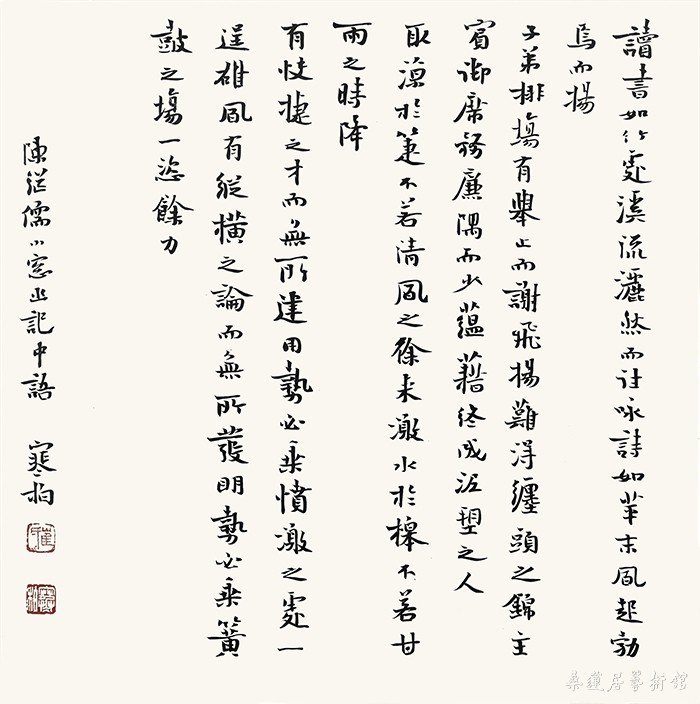 讀書如竹處溪流灑然而往咏詩如苹末風起勃
焉而揚
子弟排場有舉止而謝飛揚難得纏頭之錦主
賓御席務廉隅而少蘊藉終成泥塑之人
取涼於箑不若清風之徐來激水於槔不若甘
雨之時降
有快捷之才而無所建用勢必乘憤激之處一
逞雄風有縱橫之論而無所發明勢必乘簧
鼓之場一恣餘力
陳繼儒小窓幽記中語 寒柏
桑蓮居藝術館